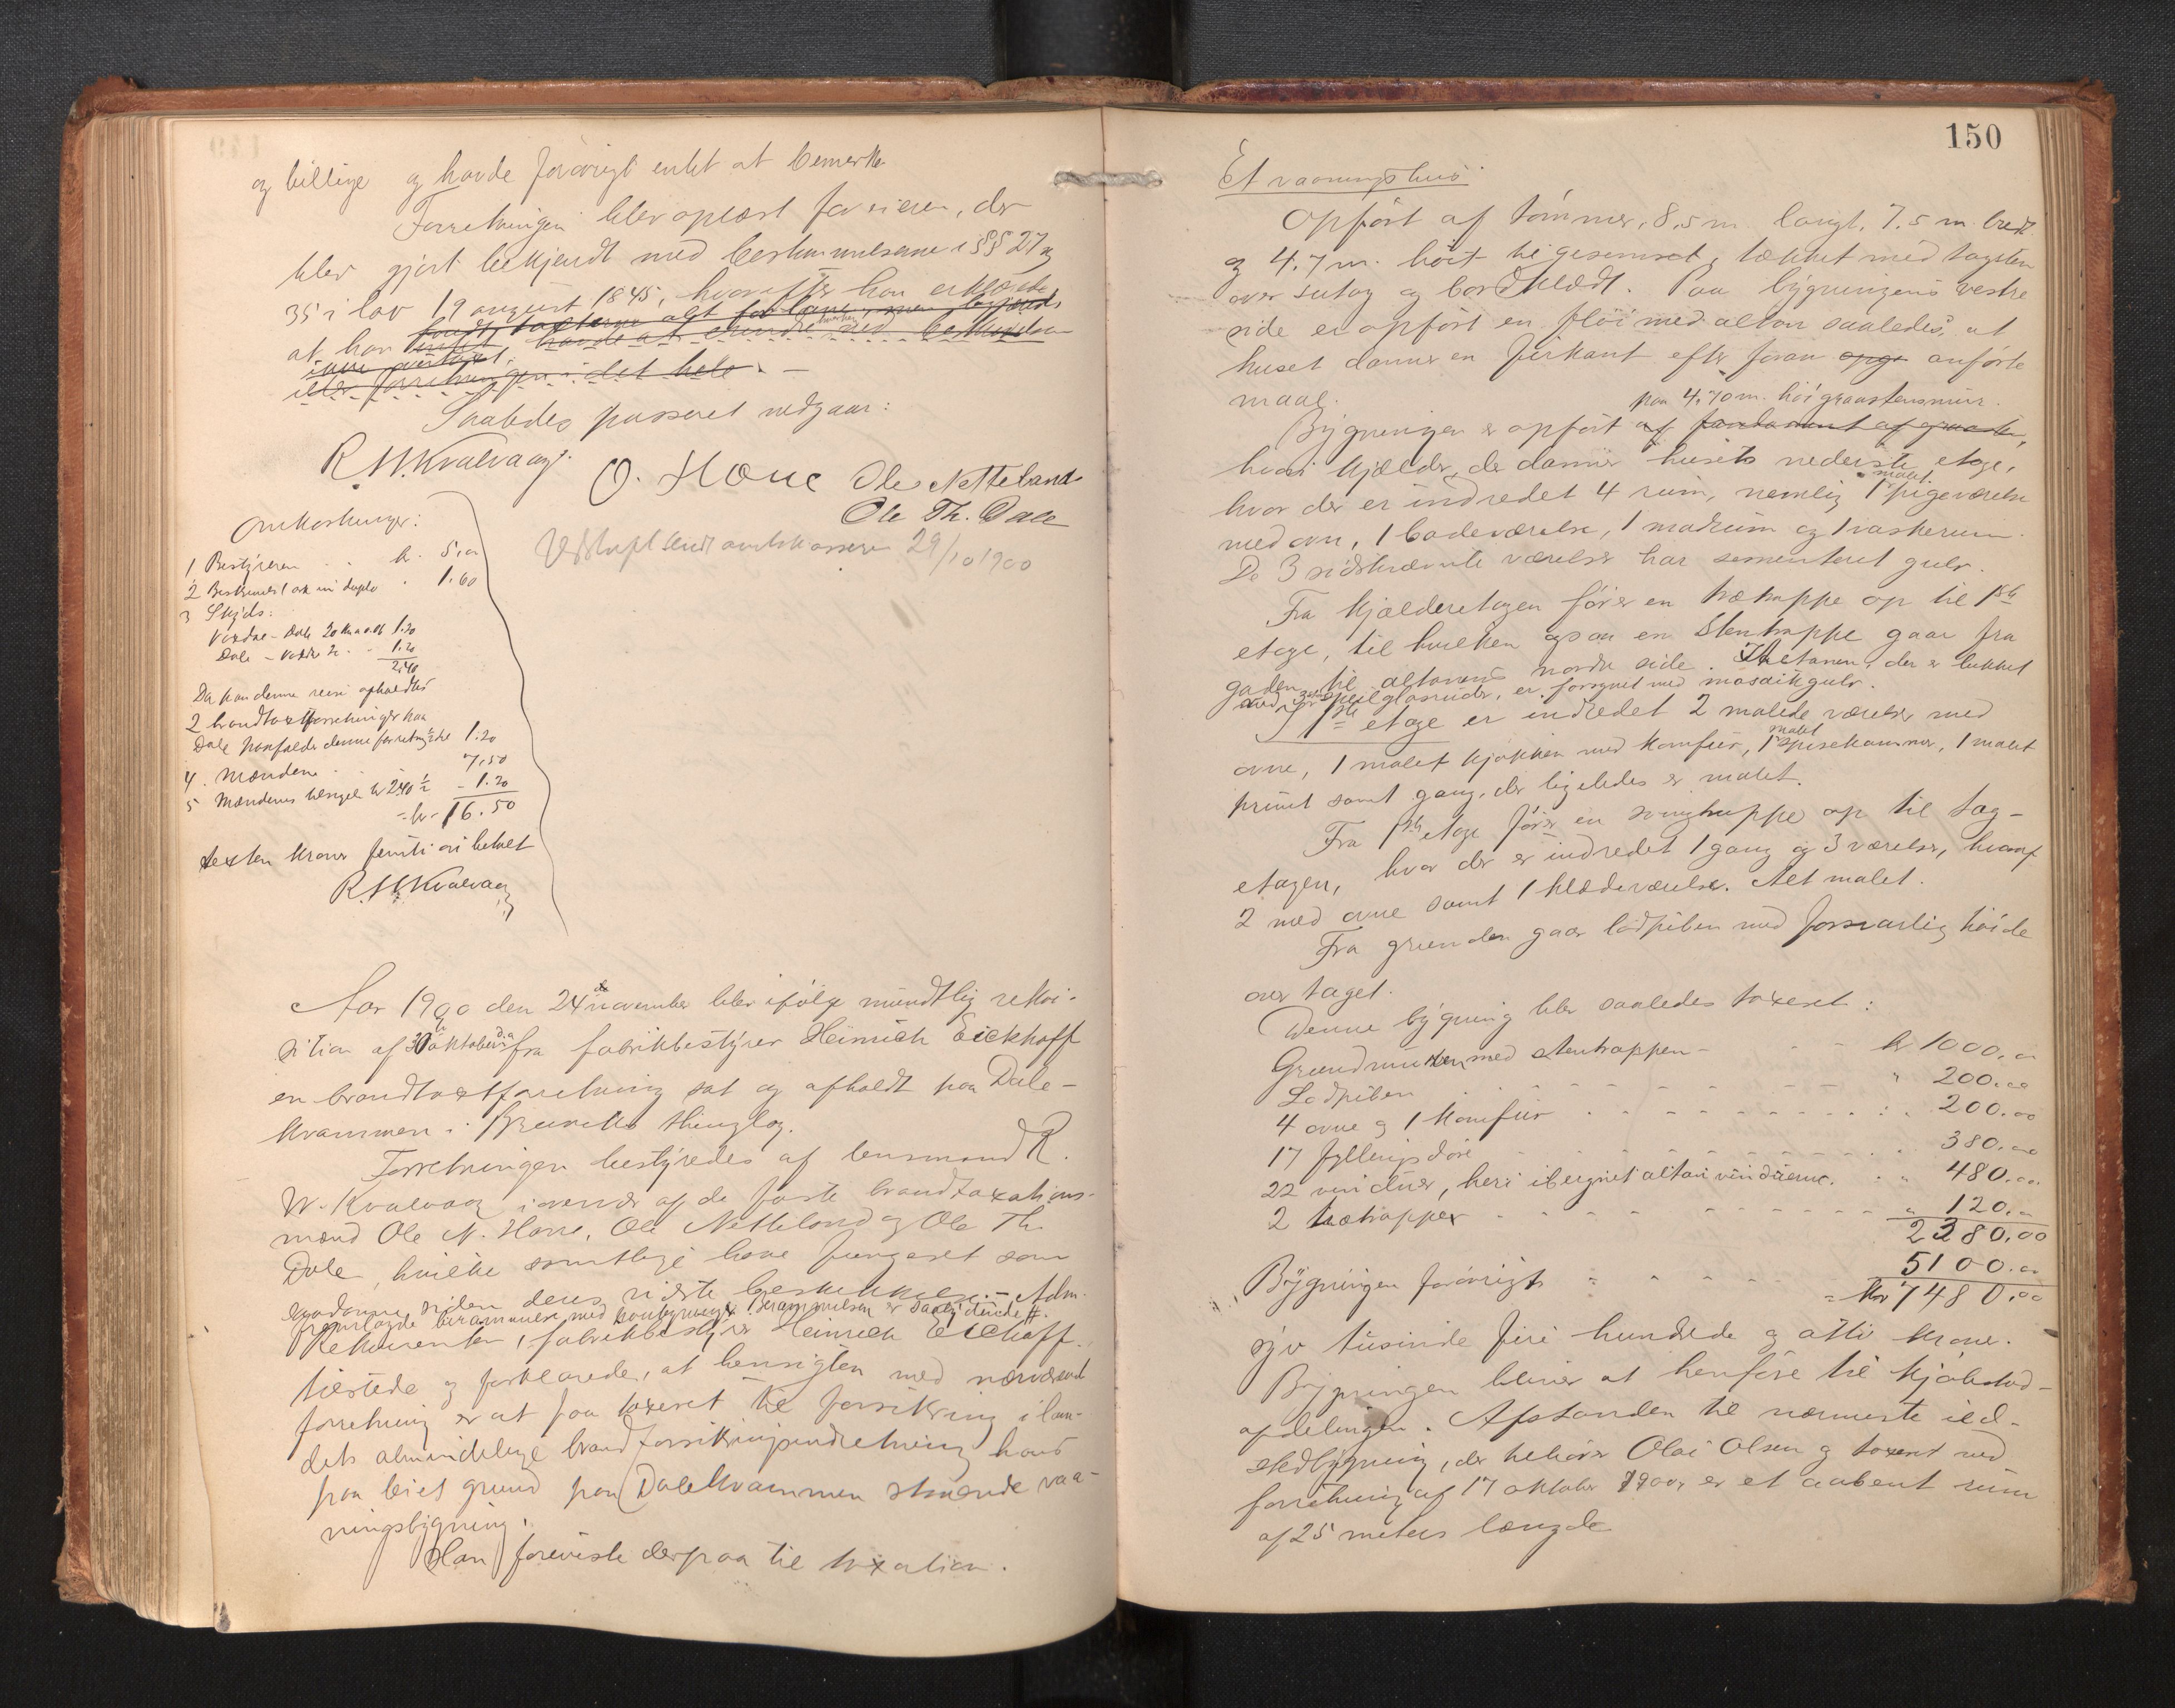 og billige og havde forøvrigt intet at bemerke.
Forretningen blev oplæst for eieren, der
blev gjort bekjendt med bestemmelserne i §§ 27 og
35 i lov 19 august 1845, hvorefter han erklærede
at han
eller forretningen i det hele. —
Saaledes passeret vedgaar:
R. W. Kvalvaag. O. Hove Ole Netteland
Ole Th. Dale
Omkostninger:
1 Bestyreren . . kr. 5,00
2 Beskrivelsen in duplo . 1.60
3 Skyds:
Vaxdal – Dale 20 km a 06 1.20
Dale – Vaxdal . . 1.20
2.40
Da han denne reise afholdtes
2 brandtaxtforretninger paa
Dale paafalder denne forretning ½del 1.20
4. Mændene . . 7.50
5 Mændenes kr 2.40 ½ – 1.20
= kr. 16.50
sexten kroner femti øre betalt
R. W. Kvalvaag
Udskrift sendt amtskasseren 29/10 1900
Aar 1900 den 24de november blev ifølge mundtlig rekvi-
sition af 30 oktober d.a. fra fabrikbestyrer Heinrich Eickhoff
en brandtaxtforretning sat og afholdt paa Dale-
kvammen i Bruviks thinglag.
Forretningen bestyredes af lensmand R.
W. Kvalvaag i overvær af de faste brandtaxations-
mænd Ole N. Hove, Ole Netteland og Ole Th.
Dale, hvilke samtlige have fungeret som
saadanne siden deres sidste beskikkelse. – Adm.
fremlagde berammelse med paategning. Berammelsen er saalydende #.
Rekvirenten, fabrikbestyrer Heinrich Eickhoff
tilstede og forklarede, at hensigten med nærværende
forretning er at faa taxeret til forsikring i lan-
dets almindelige brandforsikringsindretning hans
paa leiet grund paa Dalekvammen staaende vaa-
ningsbygning.
Han foreviste derpaa til taxation.
150
Et vaaningshus
Opført af tømmer, 8,5 m. langt, 7.5 m. bredt
og 4.7 m. høit til gesimset, tækket med tagsten
over sutag og bordklædt. Paa bygningens vestre
side er opført en fløi med altan saaledes, at
huset danner en firkant efter foran opgi anførte
maal.
paa 4.70 m. høi graastensmur.
Bygningen er opført af fundament af graasten,
hvori kjælder, der danner husets nederste etage,
hvor der er indredet 4 rum, nemlig 1 malet pigeværelse
med ovn, 1 badeværelse, 1 madrum og 1 vaskerum.
De 3 sidstnævnte værelser har sementeret gulv.
Fra kjælderetagen fører en trætrappe op til 1ste
etage, til hvilken ogsaa en stentrappe gaar fra
gaden til altanens nordre side. Altanen, der er lukket
med speilglasruder, er forsynet med mosaikgulv.
I 1ste etage er indredet 2 malede værelser med
ovne, 1 malet kjøkken med komfur, 1 malet spisekammer, 1 malet
privet samt gang, der ligeledes er malet.
Fra 1ste etage fører en svingtrappe op til tag-
etagen, hvor der er indredet 1 gang og 3 værelser, hvoraf
2 med ovne samt 1 klædeværelse. Alt malet.
Fra grunden gaar lødpiben med forsvarlig høide
over taget.
Denne bygning blev saaledes taxeret:
Grundmuren med stentrappen – – – kr 1000.00
Lødpiben – – – " 200.00
4 ovne og 1 komfur . . . " 200.00
17 fyllingsdøre . . . " 380.00
22 vinduer, heri iberegnet altanvinduerne. . " 480.00
2 trætrapper – – – " 120.00
2380.00
Bygningen forøvrigt – – – 5100.00
= kr 7480.00
syv tusinde fire hundrede og otti kroner.
Bygningen bliver at henføre til kjøbstad-
afdelingen. Afstanden til nærmeste ild-
stedbygning, der tilhører Olai Olsen og taxeret ved
forretning af 17 oktober 1900, er et aabent rum
af 25 meters længde